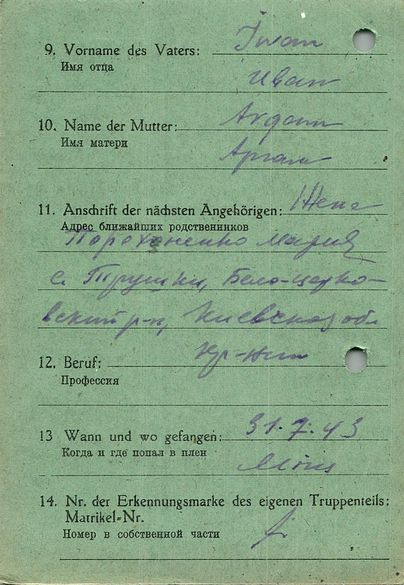 9. Vorname des Vaters: Iwan
Имя отца Иван
10. Name der Mutter:
Имя матери
11. Anschrift der nächsten Angehörigen: Жена
Адрес ближайших родственников
Мария
с. Трушки, Бело-Церко-
вский р-н, Киевская обл
12. Beruf:
Профессия
13 Wann und wo gefangen: 31.7.43
Когда и где попал в плен
14. Nr. der Erkennungsmarke des eigenen Truppenteils:
Matrikel-Nr.
Номер в собственной части